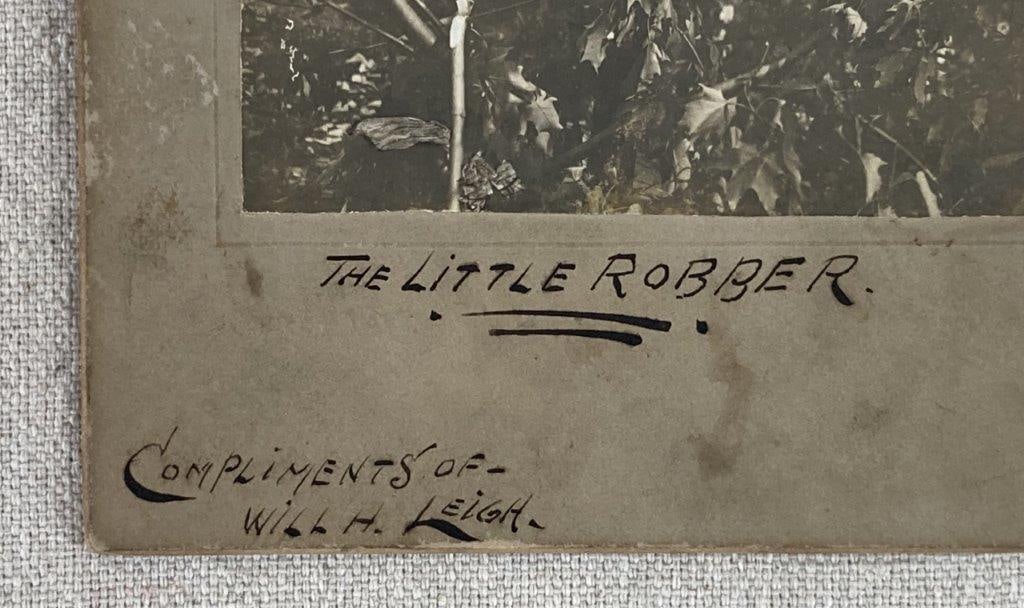 THE LITTLE ROBBER.
COMPLIMENTS OF-
WILL H. LEIGH.